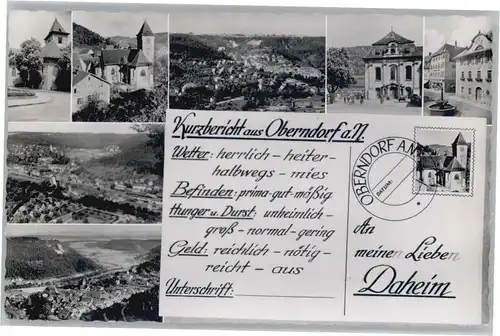 Kurzbericht aus Oberndorf a.N.
Wetter: herrlich - heiter-
halbwegs - mies
Befinden: prima - gut - mäßig
Hunger u. Durst: unheimlich -
groß - normal - gering
Geld: reichlich - nötig -
reicht - aus
Unterschrift:
OBERNDORF A.N.
DATUM:
An
meine Lieben
Daheim